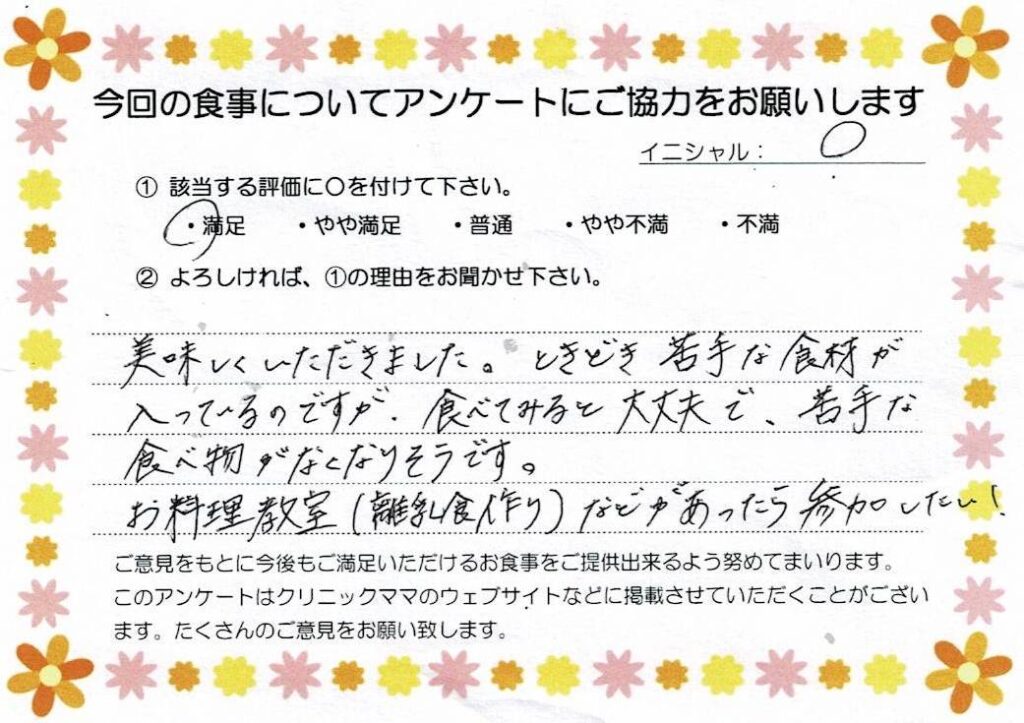 今回の食事についてアンケートにご協力をお願いします
イニシャル： O
① 該当する評価に〇を付けて下さい。
・満足 ・やや満足 ・普通 ・やや不満 ・不満
② よろしければ、①の理由をお聞かせ下さい。
美味しくいただきました。ときどき苦手な食材が
入っているのですが、食べてみると大丈夫で、苦手な
食べ物がなくなりそうです。
お料理教室(離乳食作り)などがあったら参加したい!
ご意見をもとに今後もご満足いただけるお食事をご提供出来るよう努めてまいります。
このアンケートはクリニックママのウェブサイトなどに掲載させていただくことがござい
ます。たくさんのご意見をお願い致します。